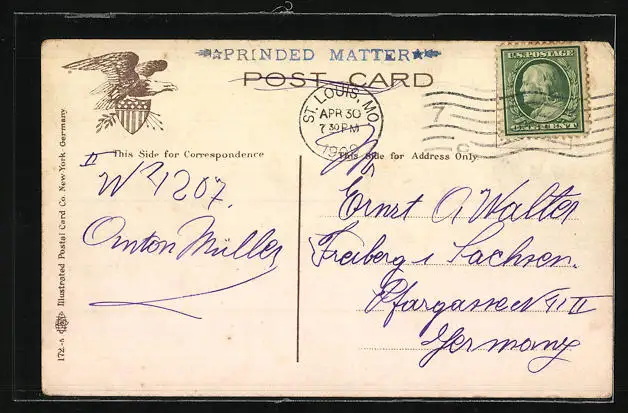 PRINDED MATTER
POST CARD
U.S. POSTAGE
ST. LOUIS, MO.
APR 30
7 30 PM
1909
7
C
This Side for Correspondence
This Side for Address Only.
II
No 1207.
Anton Müller
Ernst A. Walter
Freiberg i Sachsen.
Pfargasse No II
Germany
172-5 Illustrated Postal Card Co. New-York Germany